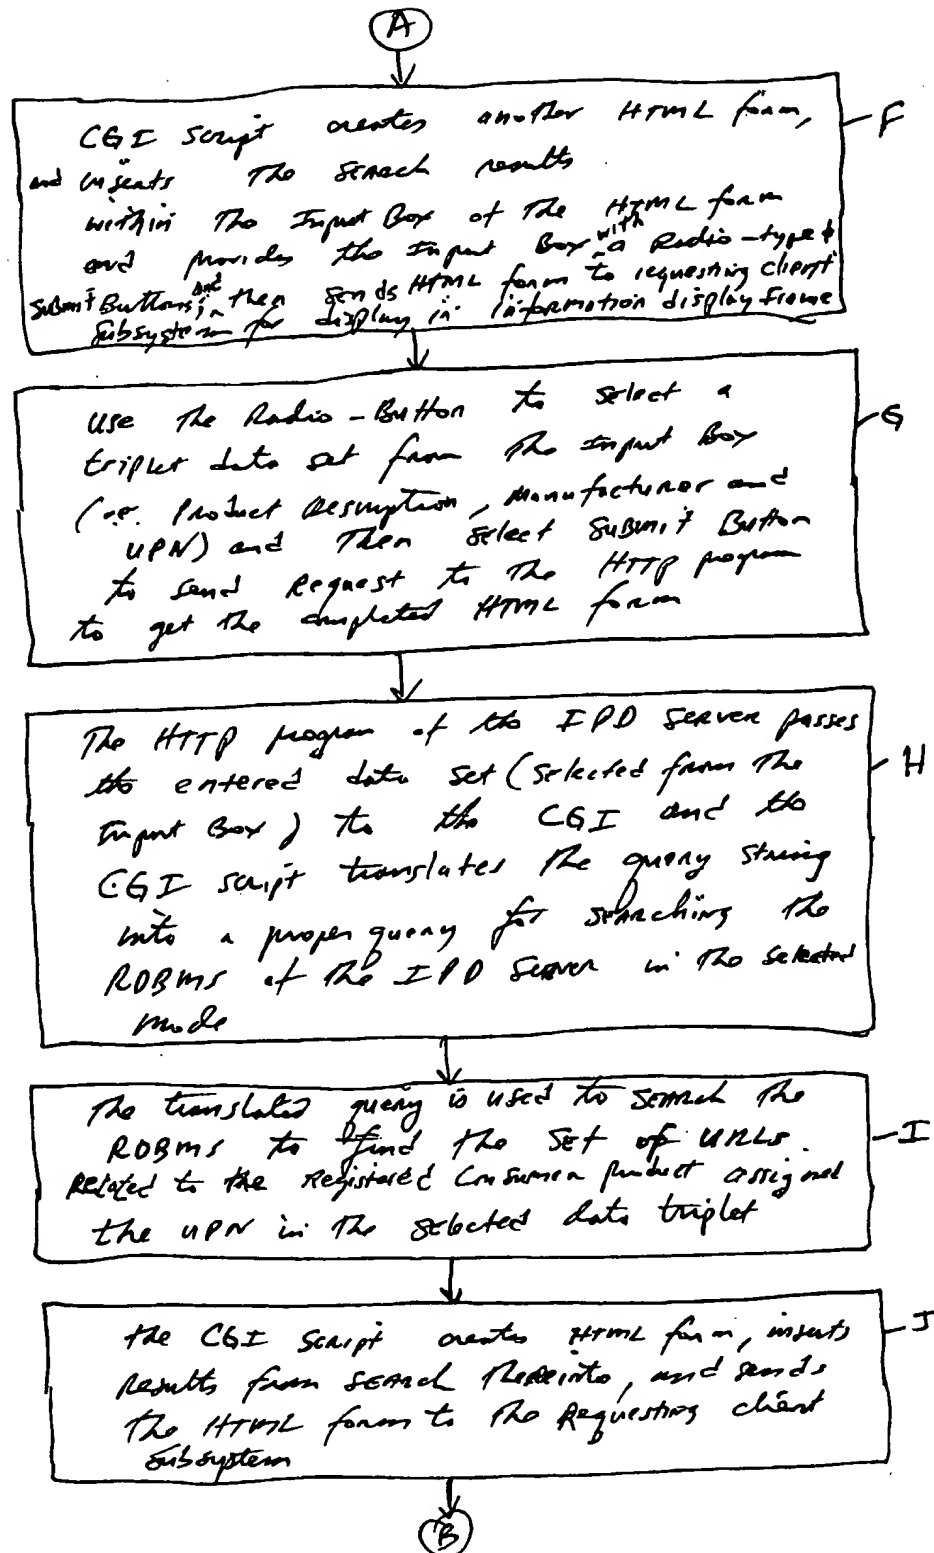 A
CGI Script creates another HTML form, F
and inserts the search results
within the Input Box of the HTML form
and provides the Input Box with a Radio-type &
Submit Buttons, and then sends HTML form to requesting client
Subsystem for display in information display frame
Use the Radio-Button to select a G
triplet data set from the Input Box
(i.e. Product Description, Manufacturer and
UPN) and then select Submit Button
to send Request to the HTTP program
to get the completed HTML form
The HTTP program of the IPD Server passes
the entered data set (selected from the H
Input Box) to the CGI and the
CGI script translates the query string
into a proper query for searching the
RDBMS of the IPD Server in the selected
mode
The translated query is used to search the
RDBMS to find the set of URLs I
Related to the Registered Consumer product assigned
the UPN in the selected data triplet
the CGI Script creates HTML form, inserts J
Results from search thereinto, and sends
the HTML form to the Requesting client
Subsystem
B